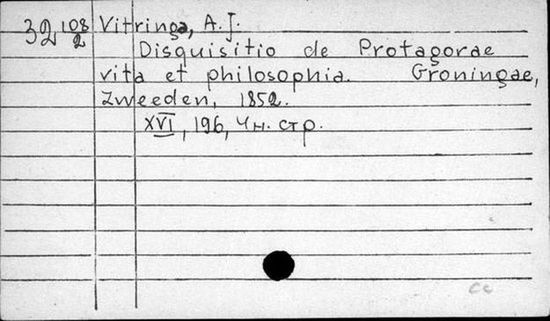 32 108/2 Vitringa, A. J.
Disquisitio de Protagorae
vita et philosophia. Groningae,
Zweeden, 1852.
XVI, 196, 4 н. стр.
cc